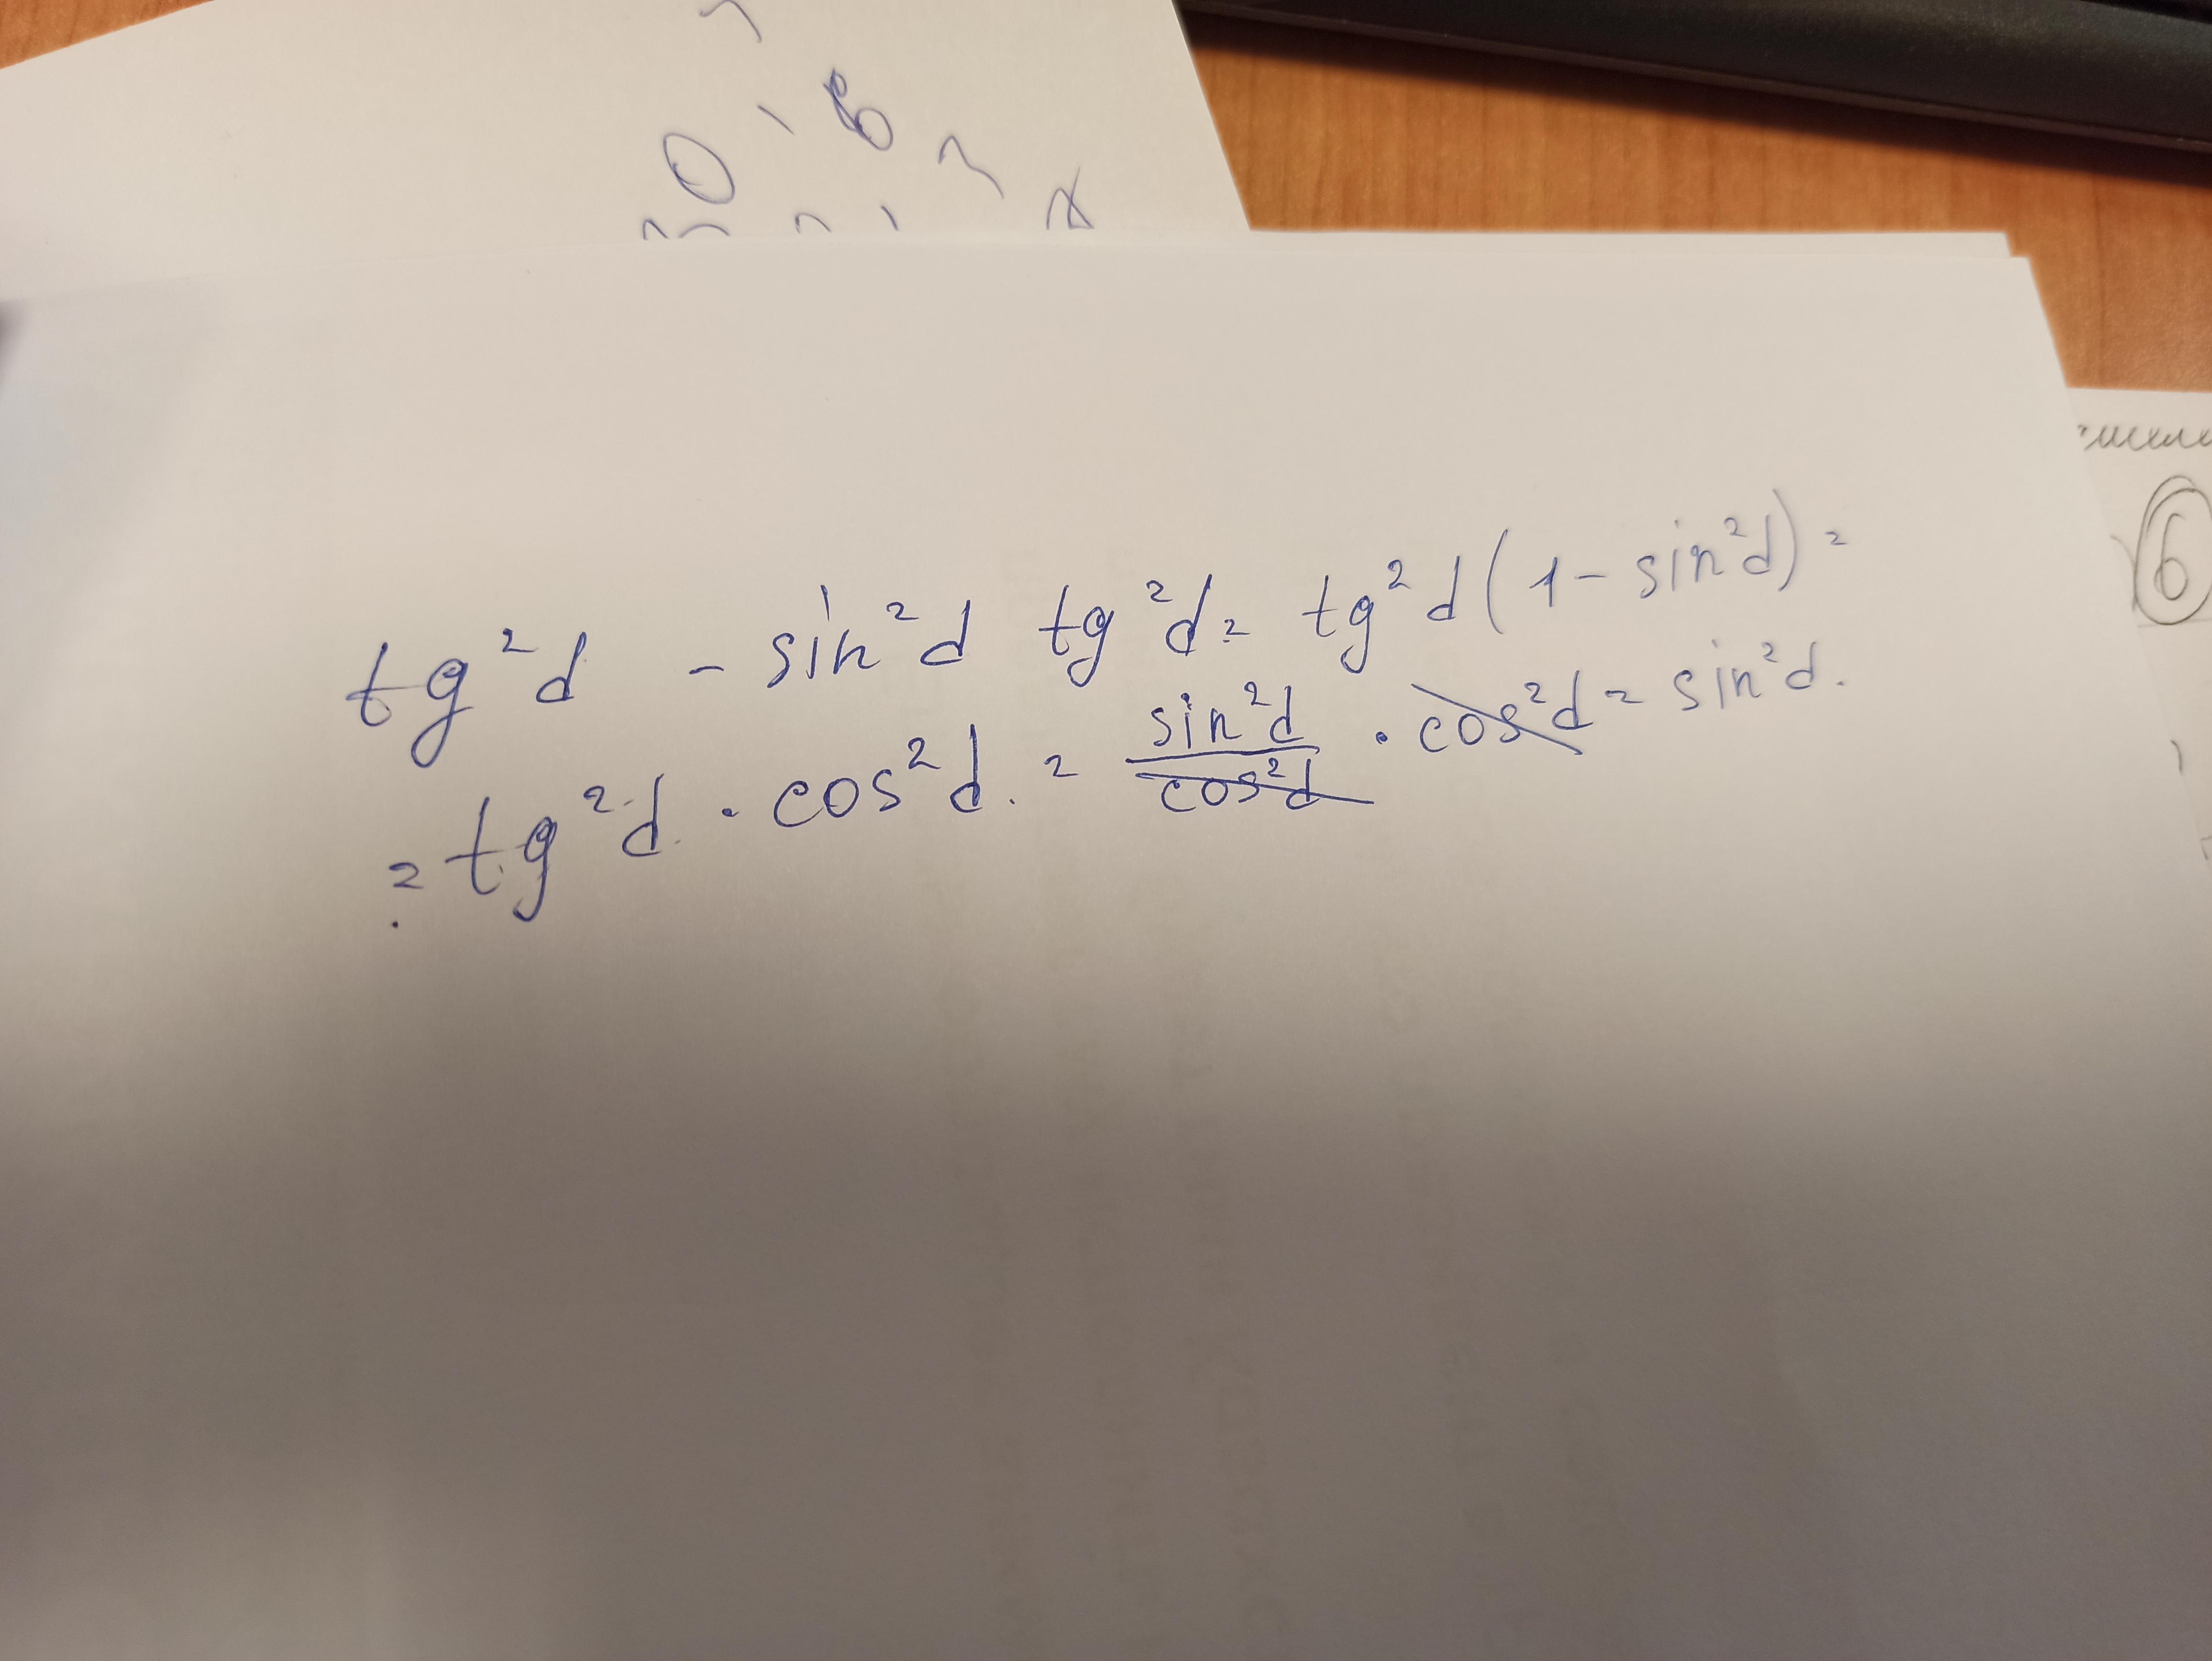 tg²d - sin²d tg²d = tg²d (1 - sin²d) =
= tg²d · cos²d. = sin²d/cos²d · cos²d = sin²d.
6